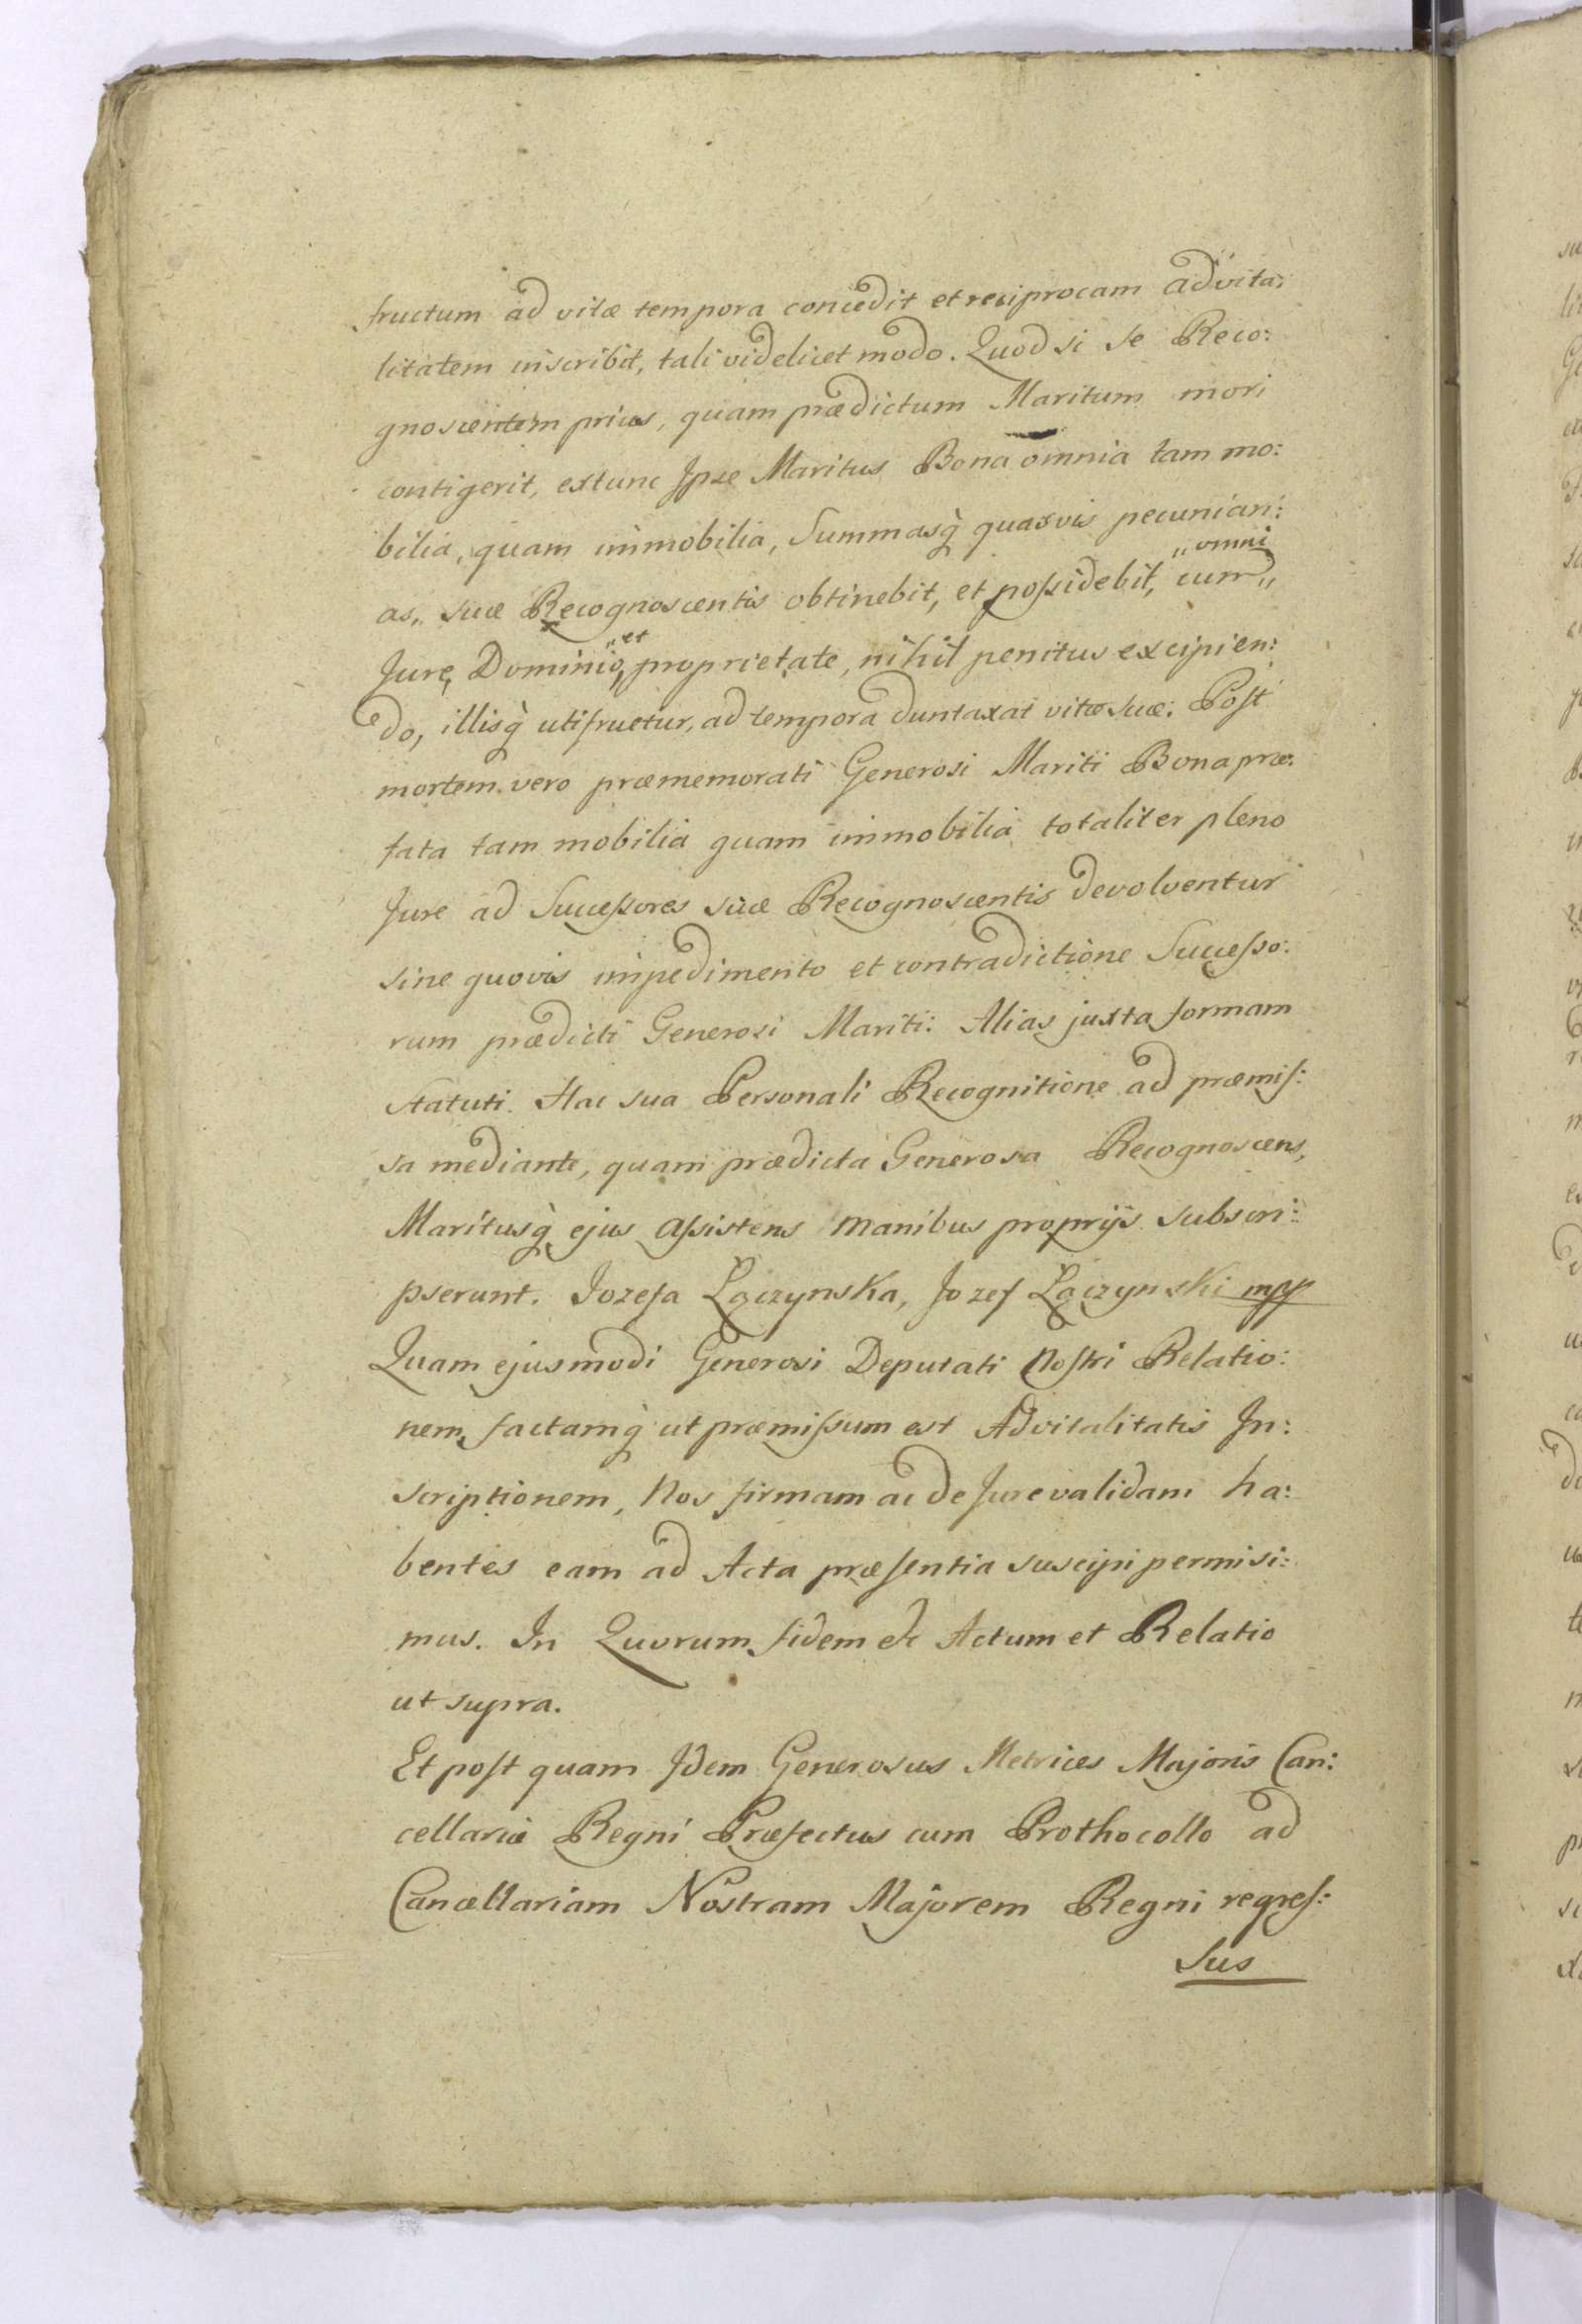 fructum ad vitæ tempora concedit et reciprocam advita:
litatem inscribit, tali videlicet modo. Quod si se Reco:
gnoscentem prius, quam prædictum Maritum mori
contigerit, extunc Ipse Maritus Bona omnia tam mo:
bilia, quam immobilia, Summasq̀ quasvis pecuniari:
as,, suæ Recognoscentis obtinebit, et possidebit, cum ,,omni
Jure, Dominio, ,,et proprietate, nihil penitus excipien:
do, illisq̀ utifruetur, ad tempora duntaxat vitæ suæ: Post
mortem vero præmemorati Generosi Mariti Bona præ:
fata tam mobilia quam immobilia totaliter pleno
Jure ad Successores suæ Recognoscentis devolventur
sine quovis impedimento et contradictione Successo:
rum prædicti Generosi Mariti: Alias juxta formam
Statuti. Hac sua Personali Recognitione ad præmis:
sa mediante, quam prædicta Generosa Recognoscens,
Maritusq̀ ejus assistens manibus proprijs subscri:
pserunt. Jozefa Łączynska, Jozef Łączynski mpp
Quam ejusmodi Generosi Deputati Nostri Relatio:
nem, factamq̀ ut præmissum est Advitalitatis In:
scriptionem, Nos firmam ac de Jure validam ha:
bentes eam ad Acta præsentia suscipi permisi:
mus. In Quorum fidem &c Actum et Relatio
ut supra.
Et post quam Idem Generosus Metrices Majoris Can:
cellariæ Regni Præfectus cum Prothocollo ad
Cancellariam Nostram Majorem Regni regres:
sus